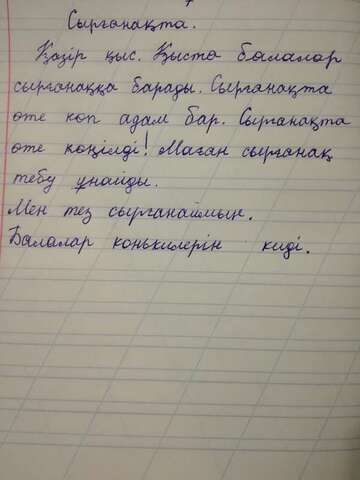 Сырғанақта.
Қазір қыс. Қыста балалар
сырғанаққа барады. Сырғанақта
өте көп адам бар. Сырғанақта
өте көңілді! Маған сырғанақ
тебу ұнайды.
Мен тез сырғанаймын.
Балалар конькилерін киді.